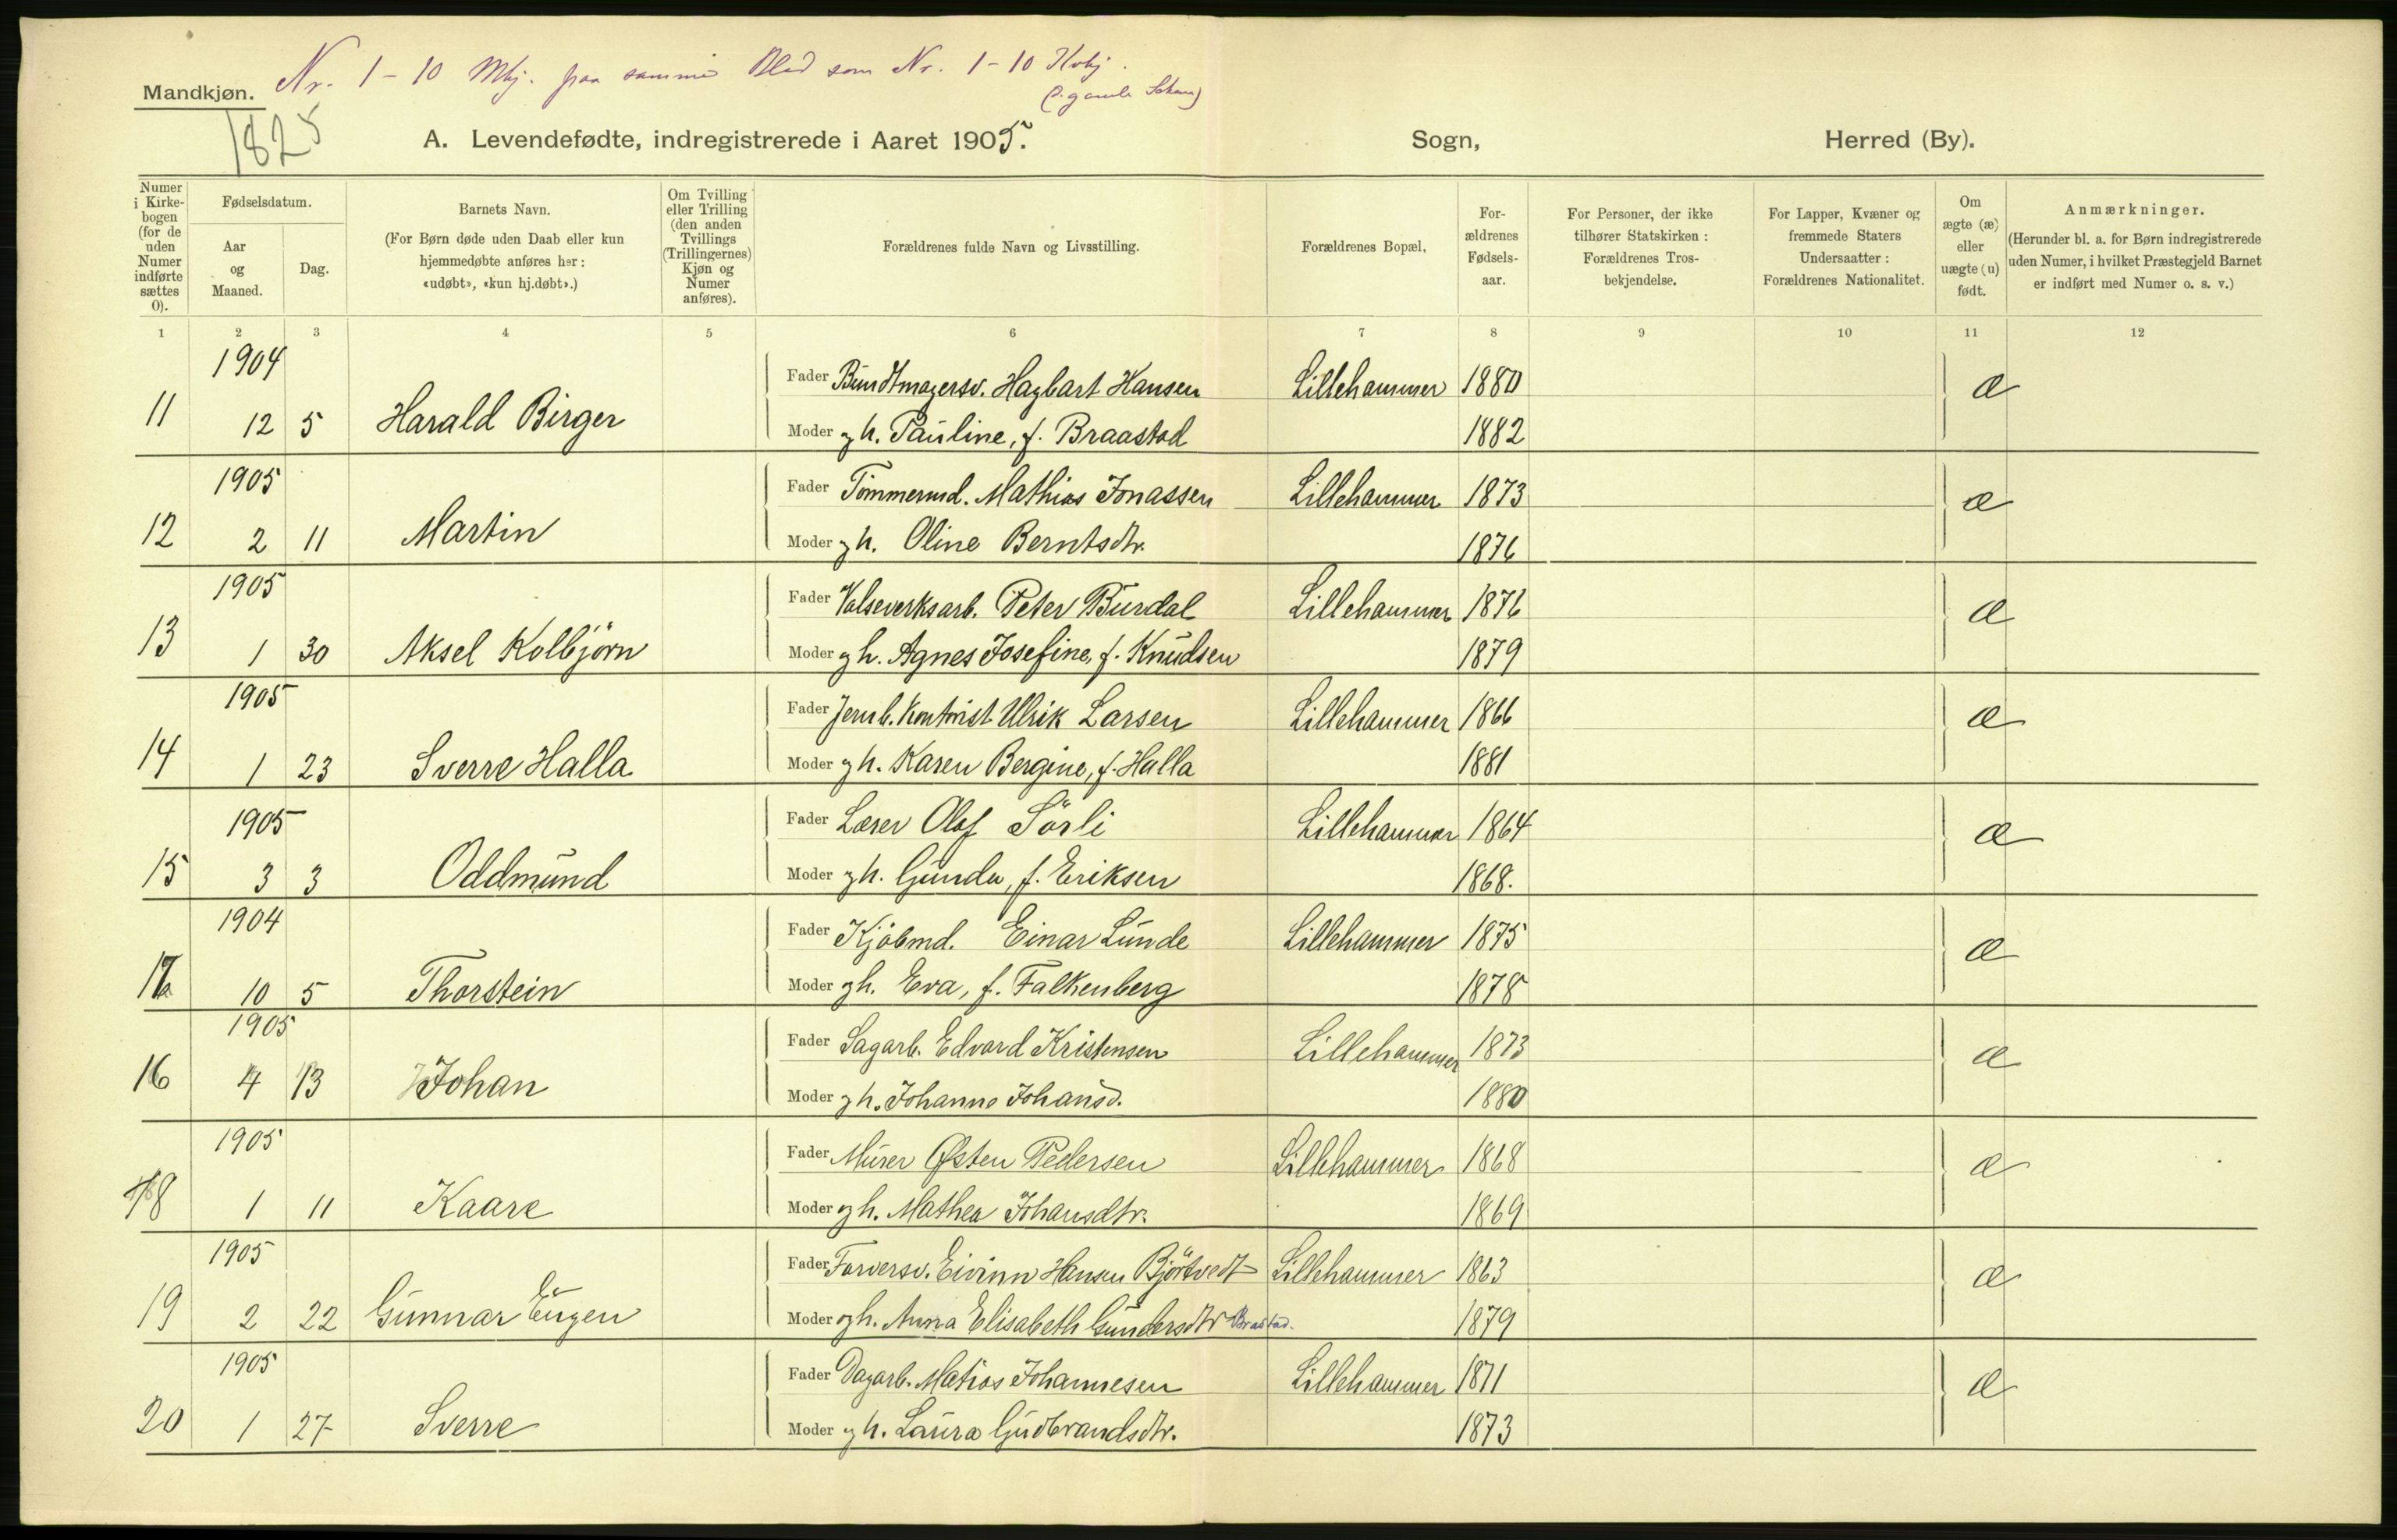 Nr. 1-10 Mkj. paa samme Blad som Nr. 1-10 Kvkj.
Mandkjøn.
(i gamle Skema)
1825
A. Levendefødte, indregistrerede i Aaret 1905. Sogn, Herred (By).
Numer i Kirkebogen (for de uden Numer indførte sættes 0).
Fødselsdatum.
Aar og Maaned.
Dag.
Barnets Navn.
(For Børn døde uden Daab eller kun hjemmedøbte anføres her: «udøbt», «kun hj.døbt».)
Om Tvilling eller Trilling (den anden Tvillings (Trillingernes) Kjøn og Numer anføres).
Forældrenes fulde Navn og Livsstilling.
Forældrenes Bopæl,
Forældrenes Fødselsaar.
For Personer, der ikke tilhører Statskirken: Forældrenes Trosbekjendelse.
For Lapper, Kvæner og fremmede Staters Undersaatter: Forældrenes Nationalitet.
Om ægte (æ) eller uægte (u) født.
Anmærkninger.
(Herunder bl. a. for Børn indregistrerede uden Numer, i hvilket Præstegjeld Barnet er indført med Numer o. s. v.)
1 2 3 4 5 6 7 8 9 10 11 12
1904
Fader Bundtmagersv. Hagbart Hansen Lillehammer 1880 æ
11 12 5 Harald Birger
Moder gh. Pauline, f. Braastad 1882
1905
Fader Tømmermd. Mathias Jonassen Lillehammer 1873 æ
12 2 11 Martin
Moder gh. Oline Berntsdtr. 1876
1905
Fader Valseverksarb. Peter Burdal Lillehammer 1876 æ
13 1 30 Aksel Kolbjörn
Moder gh. Agnes Josefine, f. Knudsen 1879
1905
Fader Jernb. Kontorist Ulrik Larsen Lillehammer 1866 æ
14 1 23 Sverre Halla
Moder gh. Karen Bergine, f. Halla 1881
1905
Fader Lærer Olaf Sörli Lillehammer 1864 æ
15 3 3 Oddmund
Moder gh. Gunda, f. Eriksen 1868.
1904
Fader Kjöbmd. Einar Lunde Lillehammer 1875 æ
10 5 Thorstein
Moder gh. Eva, f. Falkenberg 1878
1905
Fader Sagarb. Edvard Kristensen Lillehammer 1873 æ
16 4 13 Johan
Moder gh. Johanne Johansd. 1880
1905
Fader Murer Østen Pedersen Lillehammer 1868 æ
18 1 11 Kaare
Moder gh. Mathea Johansdtr. 1869
1905
Fader Farversv. Eivinn Hansen Björtvedt Lillehammer 1863 æ
19 2 22 Gunnar Eugen
Moder gh. Anna Elisabeth Gundersdtr Brastad. 1879
1905
Fader Dagarb. Matias Johannesen Lillehammer 1871 æ
20 1 27 Sverre
Moder gh. Laura Gudbrandsdtr. 1873